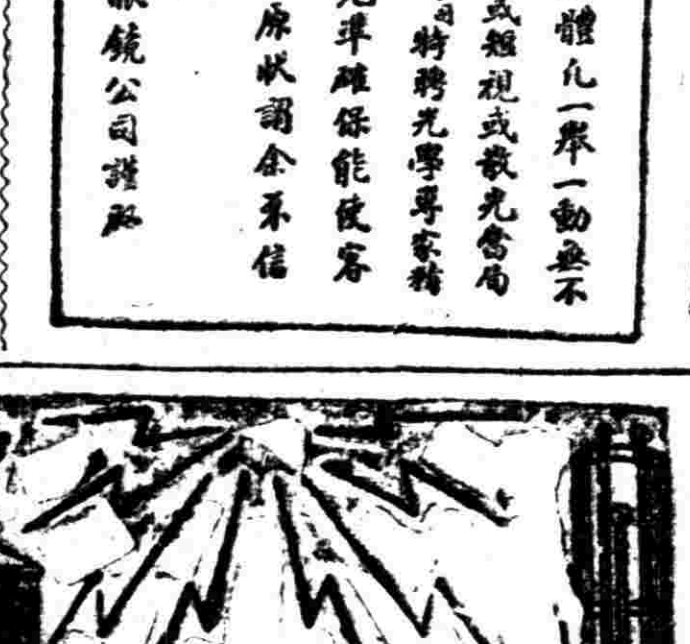 體化一舉一動無不
或短視或散光當局
司特聘光學專家精
光準確保能使客
原狀謂余不信
眼鏡公司謹啟